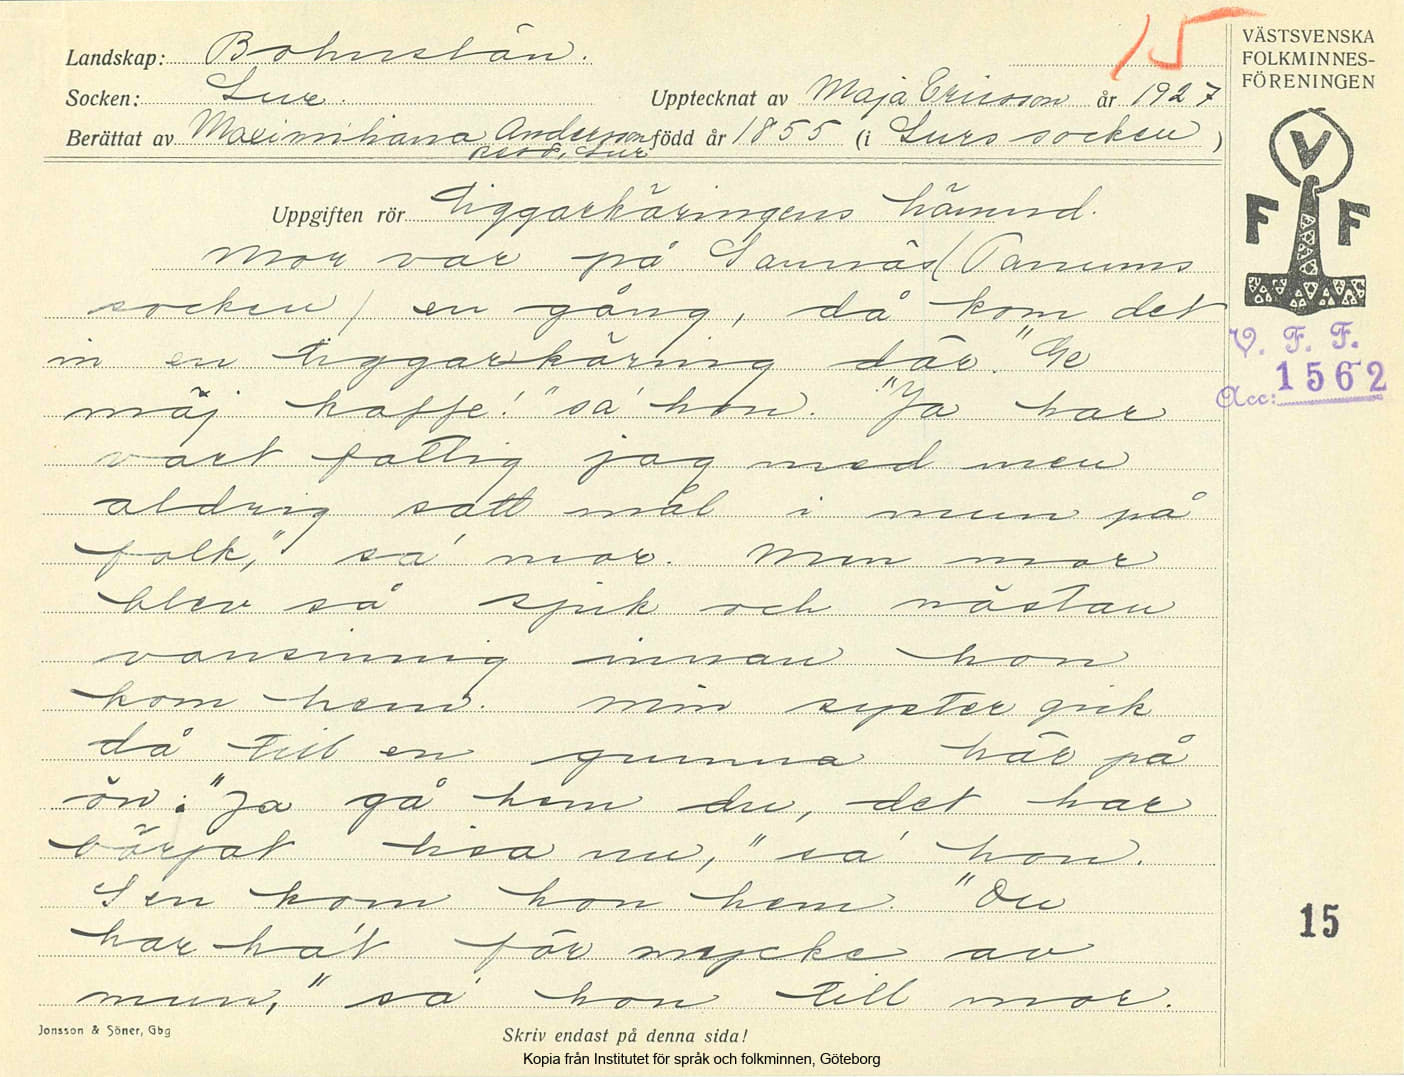 15
VÄSTSVENSKA
FOLKMINNES-
FÖRENINGEN
Landskap: Bohuslän.
Socken: Lur. Upptecknat av Maja Ericsson år 1927
Berättat av Maximiliana Andersson född år 1855 (i Lurs socken)
Lur
Uppgiften rör Tiggarkäringens hämnd.
Mor var på Sannäs (Tanums
socken) en gång, då kom det
in en tiggarkäring där. "Ge
mäj kaffe!" sa' hon. "Ja har
vart fattig jag med men
aldrig satt mål i mun på
folk," sa' mor. Men mor
blev så sjuk och nästan
vansinnig innan hon
kom hem. Min syster gick
då till en gumma här på
ön: "Ja gå hem du, det har
börjat lisa nu," sa' hon.
Sen kom hon hem. "Du
har ha't för mycke av
mun," sa' hon till mor.
V
F F
V. F. F.
Acc: 1562
15
Jonsson & Söner, Gbg
Skriv endast på denna sida!
Kopia från Institutet för språk och folkminnen, Göteborg